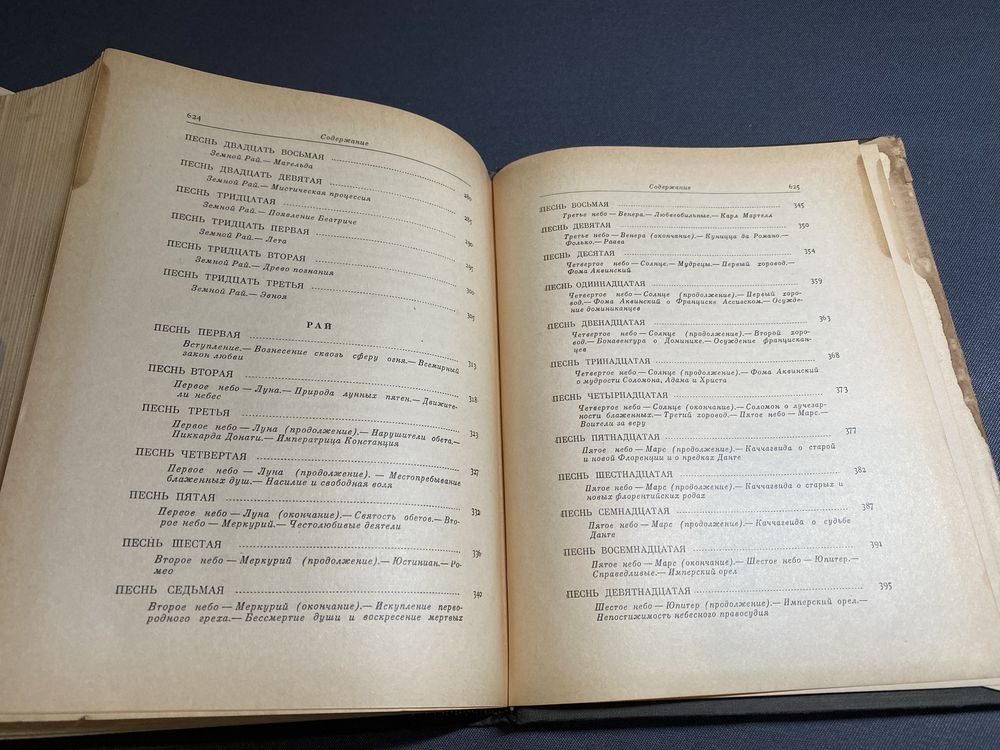 624
Содержание
ПЕСНЬ ДВАДЦАТЬ ВОСЬМАЯ
Земной Рай.— Мательда
280
ПЕСНЬ ДВАДЦАТЬ ДЕВЯТАЯ
Земной Рай.— Мистическая процессия
285
ПЕСНЬ ТРИДЦАТАЯ
Земной Рай.— Появление Беатриче
290
ПЕСНЬ ТРИДЦАТЬ ПЕРВАЯ
Земной Рай.— Лета
295
ПЕСНЬ ТРИДЦАТЬ ВТОРАЯ
Земной Рай.— Древо познания
300
ПЕСНЬ ТРИДЦАТЬ ТРЕТЬЯ
Земной Рай.— Эвноя
305
РАЙ
ПЕСНЬ ПЕРВАЯ
313
Вступление.— Вознесение сквозь сферу огня.— Всемирный
закон любви
ПЕСНЬ ВТОРАЯ
318
Первое небо — Луна.— Природа лунных пятен.— Движите-
ли небес
ПЕСНЬ ТРЕТЬЯ
323
Первое небо — Луна (продолжение).— Нарушители обета.—
Пиккарда Донати.— Императрица Констанция
ПЕСНЬ ЧЕТВЕРТАЯ
327
Первое небо — Луна (продолжение). — Местопребывание
блаженных душ.— Насилие и свободная воля
ПЕСНЬ ПЯТАЯ
332
Первое небо — Луна (окончание).— Святость обетов.— Вто-
рое небо — Меркурий.— Честолюбивые деятели
ПЕСНЬ ШЕСТАЯ
336
Второе небо — Меркурий (продолжение).— Юстиниан.— Ро-
мео
ПЕСНЬ СЕДЬМАЯ
340
Второе небо — Меркурий (окончание).— Искупление перво-
родного греха.— Бессмертие души и воскресение мертвых
Содержание 625
ПЕСНЬ ВОСЬМАЯ 345
Третье небо — Венера.— Любвеобильные.— Карл Мартелл
ПЕСНЬ ДЕВЯТАЯ 350
Третье небо — Венера (окончание).— Куницца да Романо.—
Фолько.— Раава
ПЕСНЬ ДЕСЯТАЯ 354
Четвертое небо — Солнце.— Мудрецы.— Первый хоровод.—
Фома Аквинский
ПЕСНЬ ОДИННАДЦАТАЯ 359
Четвертое небо — Солнце (продолжение).— Первый хоро-
вод.— Фома Аквинский о Франциске Ассизском.— Осужде-
ние доминиканцев
ПЕСНЬ ДВЕНАДЦАТАЯ 363
Четвертое небо — Солнце (продолжение).— Второй хоро-
вод.— Бонавентура о Доминике.— Осуждение францискан-
цев
ПЕСНЬ ТРИНАДЦАТАЯ 368
Четвертое небо — Солнце (продолжение).— Фома Аквинский
о мудрости Соломона, Адама и Христа
ПЕСНЬ ЧЕТЫРНАДЦАТАЯ 373
Четвертое небо — Солнце (окончание).— Соломон о лучезар-
ности блаженных.— Третий хоровод.— Пятое небо — Марс.—
Воители за веру
ПЕСНЬ ПЯТНАДЦАТАЯ 377
Пятое небо — Марс (продолжение).— Каччагвида о старой
и новой Флоренции и о предках Данте
ПЕСНЬ ШЕСТНАДЦАТАЯ 382
Пятое небо — Марс (продолжение).— Каччагвида о старых и
новых флорентийских родах
ПЕСНЬ СЕМНАДЦАТАЯ 387
Пятое небо — Марс (продолжение).— Каччагвида о судьбе
Данте
ПЕСНЬ ВОСЕМНАДЦАТАЯ 391
Пятое небо — Марс (окончание).— Шестое небо — Юпитер.—
Справедливые.— Имперский орел
ПЕСНЬ ДЕВЯТНАДЦАТАЯ 395
Шестое небо — Юпитер (продолжение).— Имперский орел.—
Непостижимость небесного правосудия